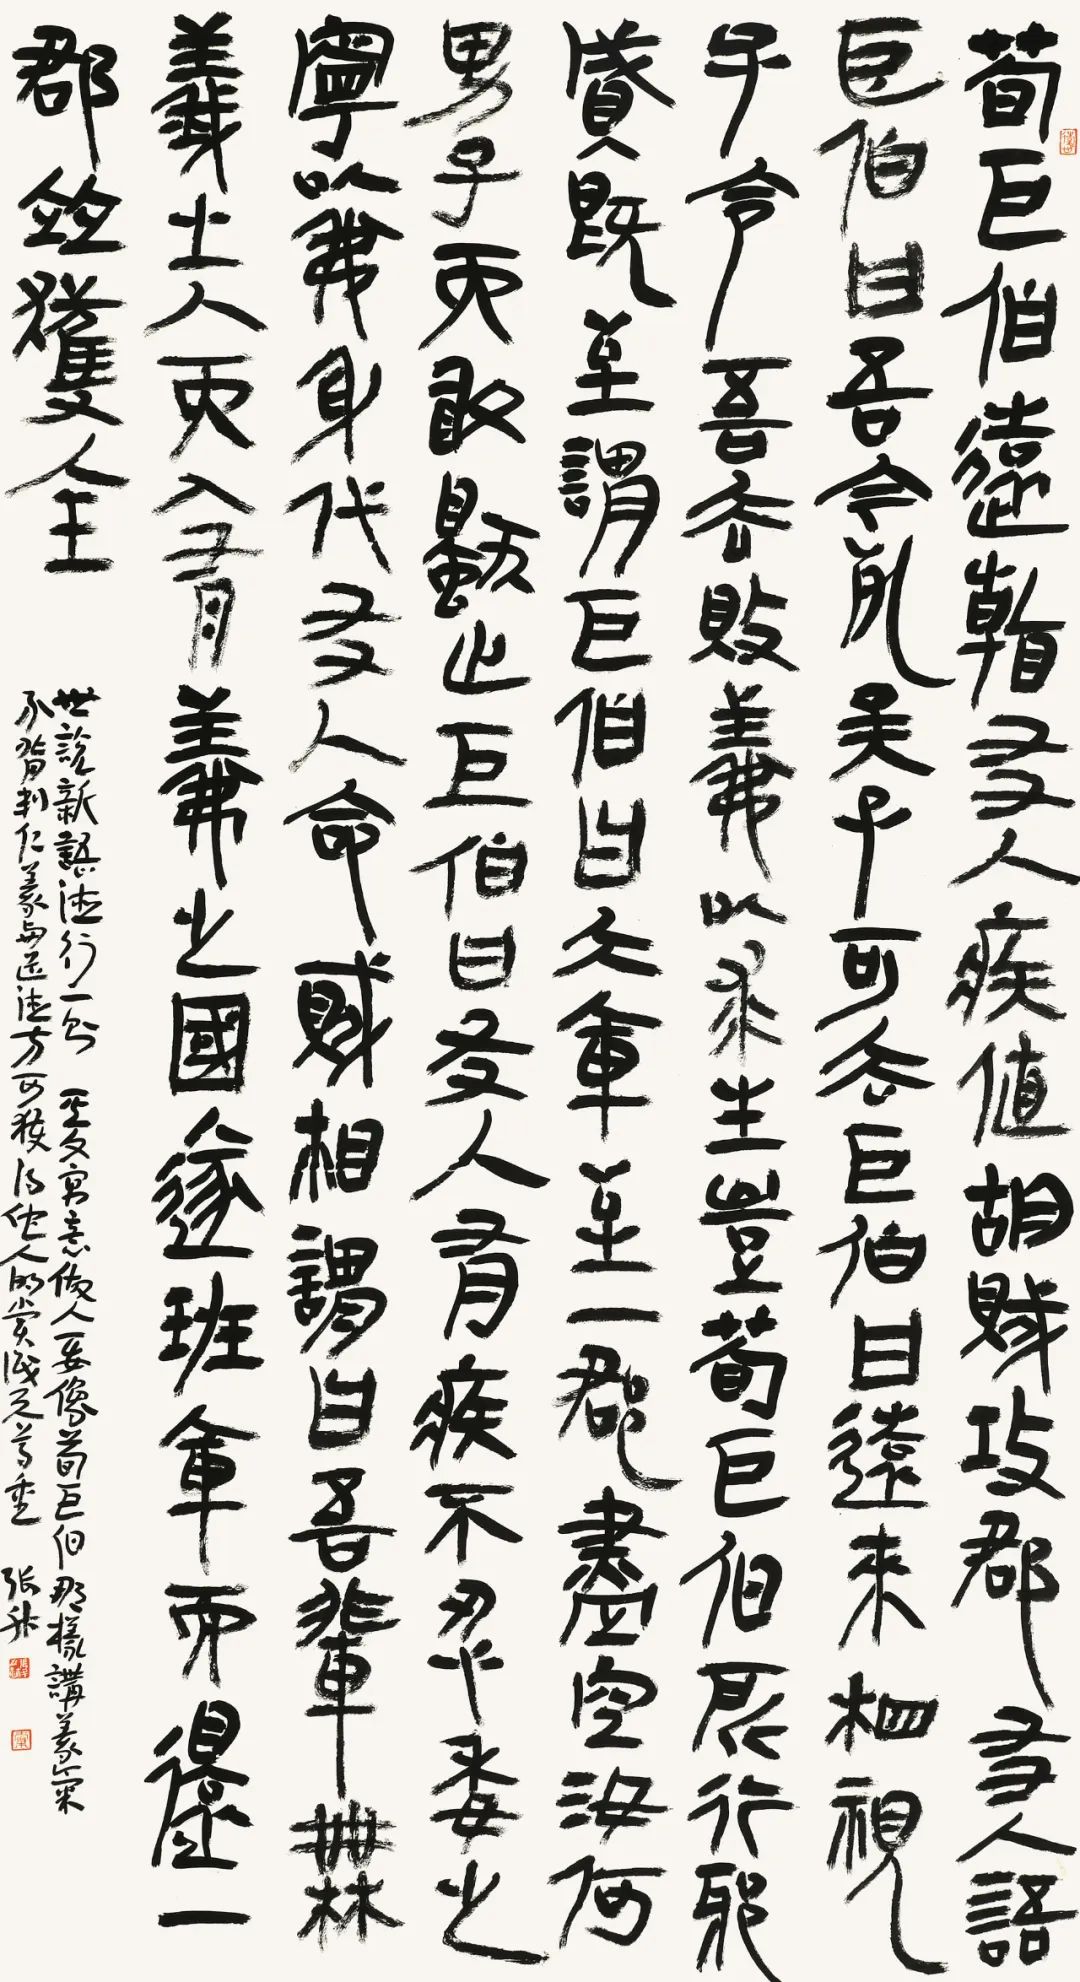 荀巨伯遠看友人疾值胡賊攻郡友人語
巨伯曰吾今死矣子可去巨伯曰遠來相視
子令吾去敗義以求生豈荀巨伯所行邪
賊既至謂巨伯曰大軍至一郡盡空汝何
男子而敢獨止巨伯曰友人有疾不忍委之
寧以我身代友人命賊相謂曰吾輩無
義之人而入有義之國遂班軍而還一
郡並獲全
世說新語德行一則 文寓意做人要像荀巨伯那樣講義氣
不背判仁義與道德方可獲得他人的賞識尊重 張